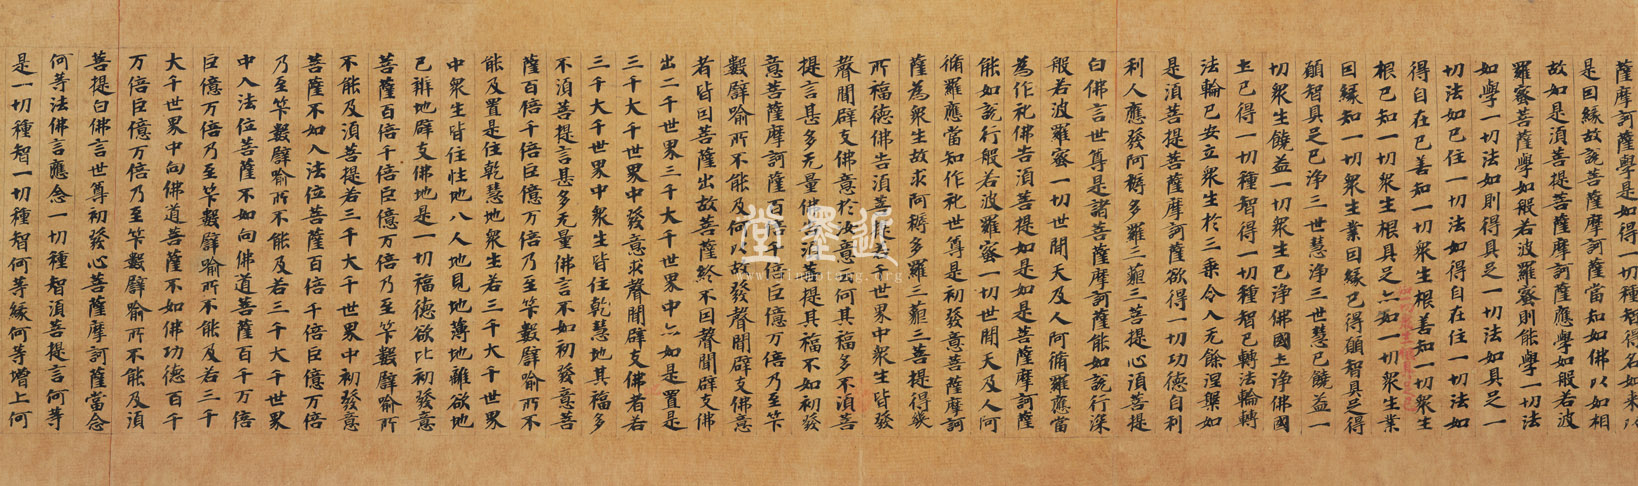 薩摩訶薩學是如得一切種智得名如來以
是因緣故說菩薩摩訶薩當知如佛以如相
故如是湏菩提菩薩摩訶薩應學如般若波
羅蜜菩薩學如般若波羅蜜則能學一切法
如學一切法如則得具足一切法如具足一
切法如已住一切法如得自在住一切法如
得自在已善知一切衆生根善知一切衆生
根已知一切衆生根具足亦知一切衆生業
因緣知一切衆生業因緣已得願智具足得
願智具足已淨三世慧淨三世慧已饒益一
切衆生饒益一切衆生已淨佛國土淨佛國
土已得一切種智得一切種智已轉法輪轉
法輪已安立衆生於三乘令入无餘涅槃如
是湏菩提菩薩摩訶薩欲得一切功德自利
利人應發阿耨多羅三藐三菩提心湏菩提
白佛言世尊是諸菩薩摩訶薩能如說行深
般若波羅蜜一切世間天及人阿脩羅應當
為作礼佛告湏菩提如是如是菩薩摩訶薩
能如說行般若波羅蜜一切世間天及人阿
脩羅應當知作礼世尊是初發意菩薩摩訶
薩為衆生故求阿耨多羅三藐三菩提得幾
所福德佛告湏菩提若千世界中衆生皆發
聲聞辟支佛意於汝意云何其福多不湏菩
提言甚多无量佛告湏菩提其福不如初發
意菩薩摩訶薩百倍千倍巨億万倍乃至筭
數譬喻所不能及何以故發聲聞辟支佛意
者皆因菩薩出故菩薩終不因聲聞辟支佛
出二千世界三千大千世界中亦如是置是
三千大千世界中發意求聲聞辟支佛者若
三千大千世界中衆生皆住乾慧地其福多
不湏菩提言甚多无量佛言不如初發意菩
薩百倍千倍巨億万倍乃至筭數譬喻所不
能及置是住乾慧地衆生若三千大千世界
中衆生皆住性地八人地見地薄地離欲地
已辨地辟支佛地是一切福德欲比初發意
菩薩百倍千倍巨億万倍乃至筭數譬喻所
不能及湏菩提若三千大千世界中初發意
菩薩不如入法位菩薩百倍千倍巨億万倍
乃至筭數譬喻所不能及若三千大千世界
中入法位菩薩不如向佛道菩薩百千万倍
巨億万倍乃至筭數譬喻所不能及若三千
大千世界中向佛道菩薩不如佛功德百千
万倍巨億万倍乃至筭數譬喻所不能及湏
菩提白佛言世尊初發心菩薩摩訶薩當念
何等法佛言應念一切種智湏菩提言何等
是一切種智一切種智何等緣何等增上何
近墨堂